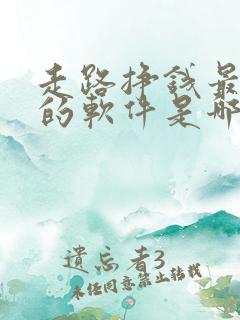 走路挣钱最
的軟件是哪
遺忘者3
未经同意禁止转载